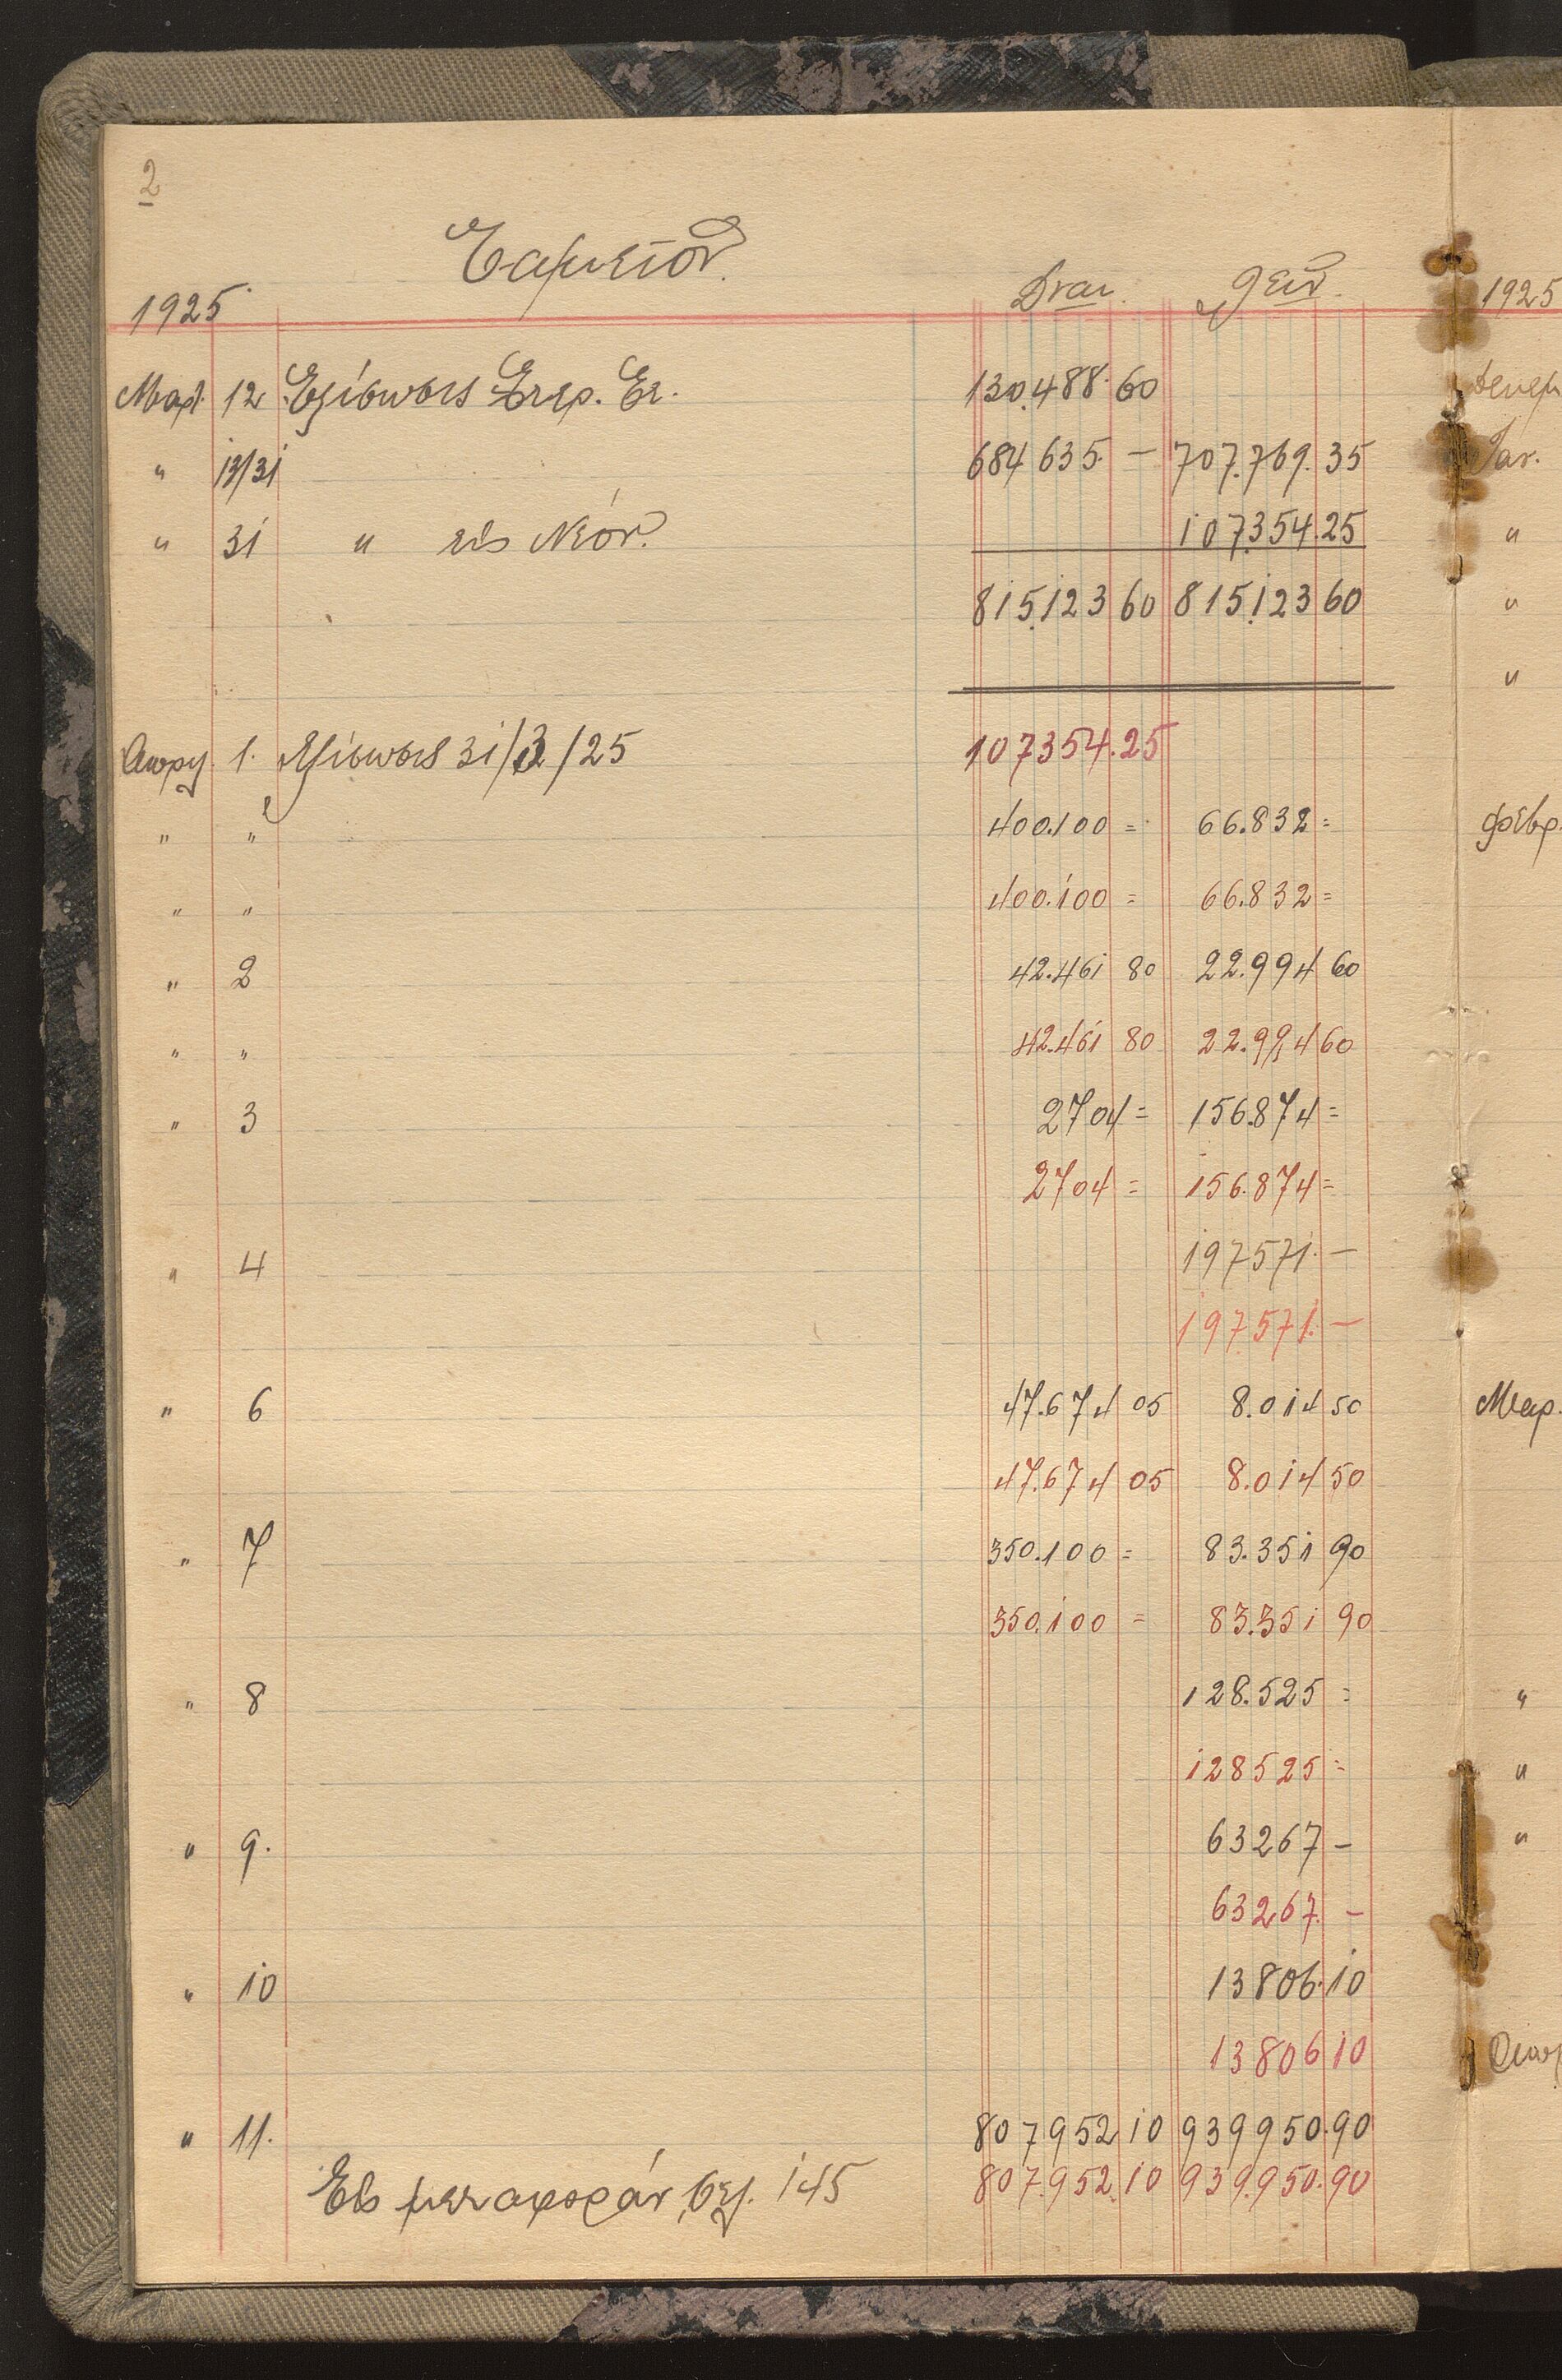 2
Ταμεῖον.
1925. Δναι. Λειν. 1925
Μαρτ. 12 Ἐξίσωσις 130.488.60
" 13/31 684 635. — 707.769.35 Ἰαν.
" 31 " εἰς Νέον. 107354.25 "
815.123 60 815.123 60 "
"
Απρι. 1. Εξίσωσις 31/3/25 107354.25
" " 400.100 = 66.832 = Φεβρ.
" " 400.100 = 66.832 =
" 2 42.461 80 22.994 60
" " 42.461 80 22.994 60
" 3 2704 = 156.874 =
2704 = 156.874 =
" 4 197571. —
197.571. —
" 6 47.674 05 8.014 50 Μαρ.
47.674 05 8.014 50
" 7 350.100 = 83.351 90
350.100 = 83.351 90
" 8 128.525 = "
128525 = "
" 9. 63267 — "
63267. —
" 10 13806.10
13806 10
" 11. 807952 10 939950.90
Εἰς μεταφοράν σελ. 145 807.952.10 939.950.90